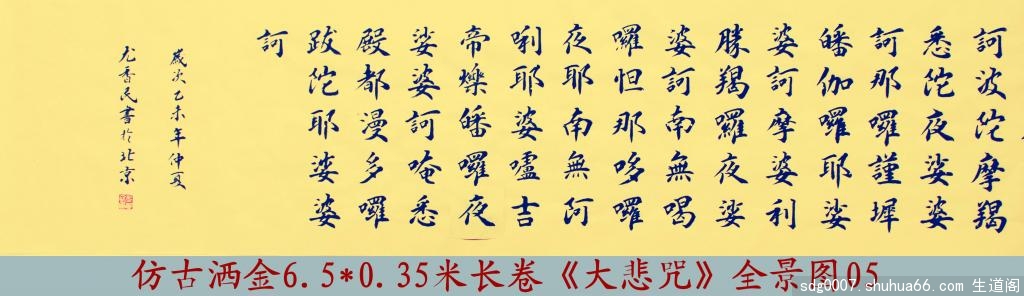 訶波陀摩羯
悉陀夜娑婆
訶那囉謹墀
皤伽囉耶娑
婆訶摩婆利
勝羯羅夜娑
婆訶南無喝
囉怛那哆囉
夜耶南無阿
唎耶婆嚧吉
帝爍皤囉夜
娑婆訶唵悉
殿都漫多囉
跋陀耶娑婆
訶
歲次乙未年仲夏
尤香民書於北京
仿古洒金6.5*0.35米长卷《大悲咒》全景图05
sdg0007.shuhua66.com 生道阁